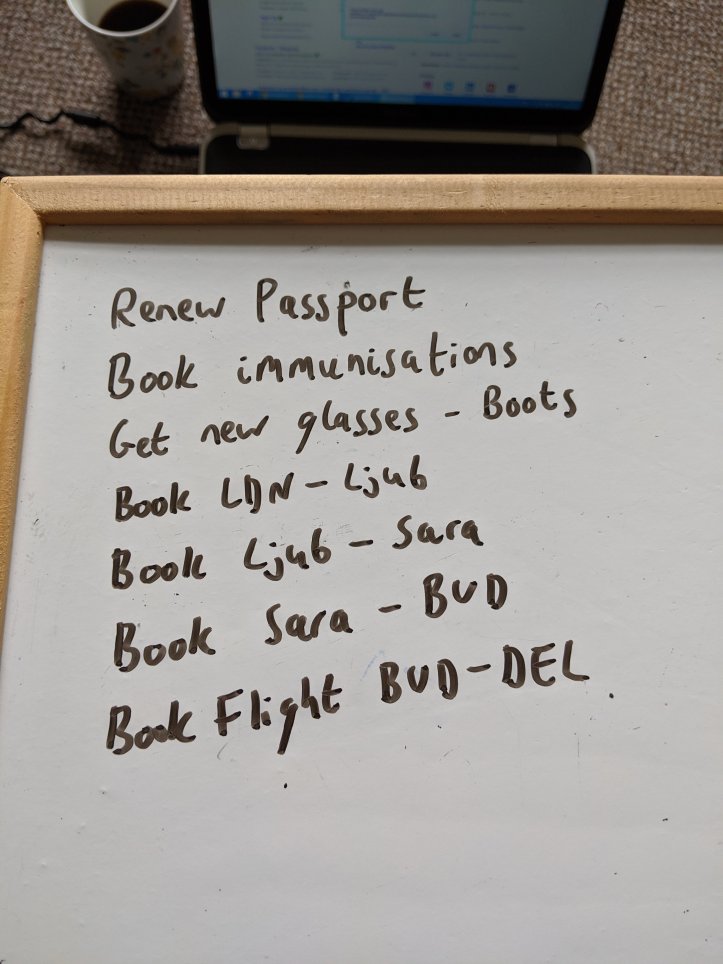 Renew Passport
Book immunisations
Get new glasses - Boots
Book LDN - Ljub
Book Ljub - Sara
Book Sara - BUD
Book Flight BUD-DEL